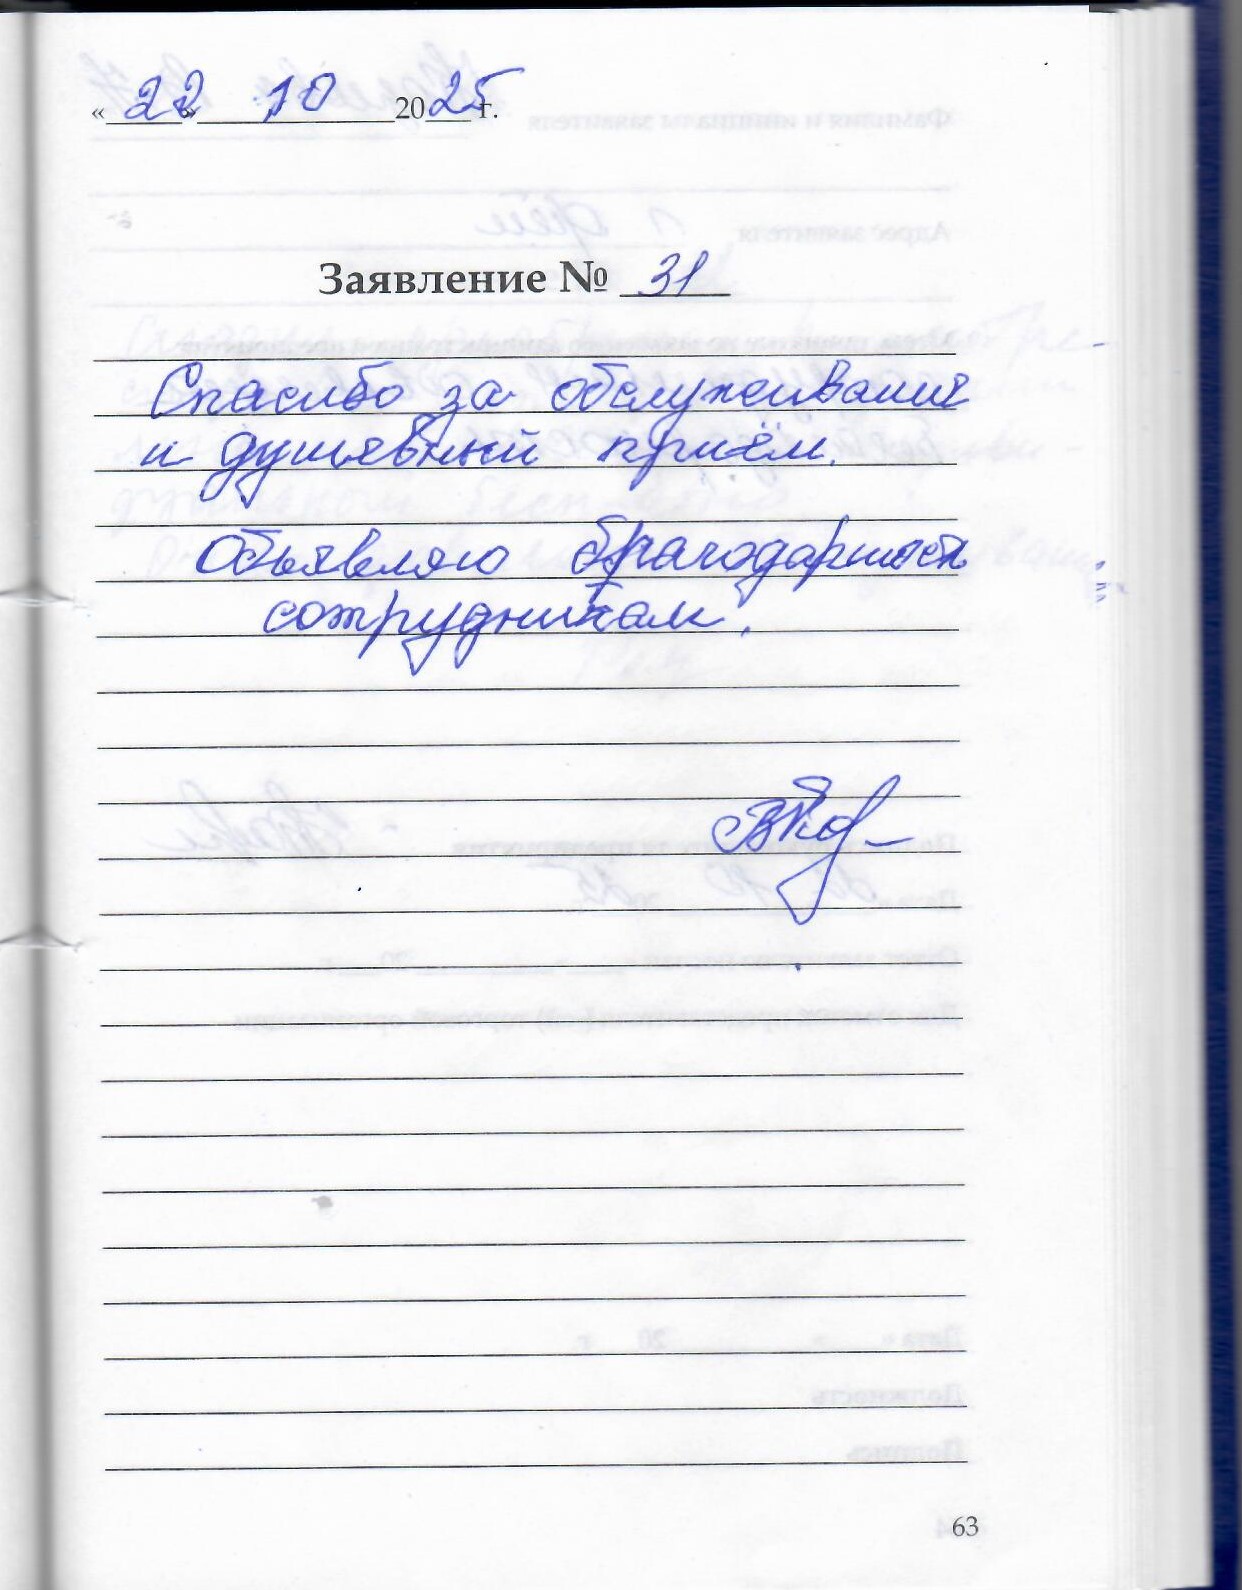 «22» 10 2025 г.
Заявление № 31
Спасибо за обслуживание
и душевный приём.
Объявляю благодарность
сотрудникам.
63